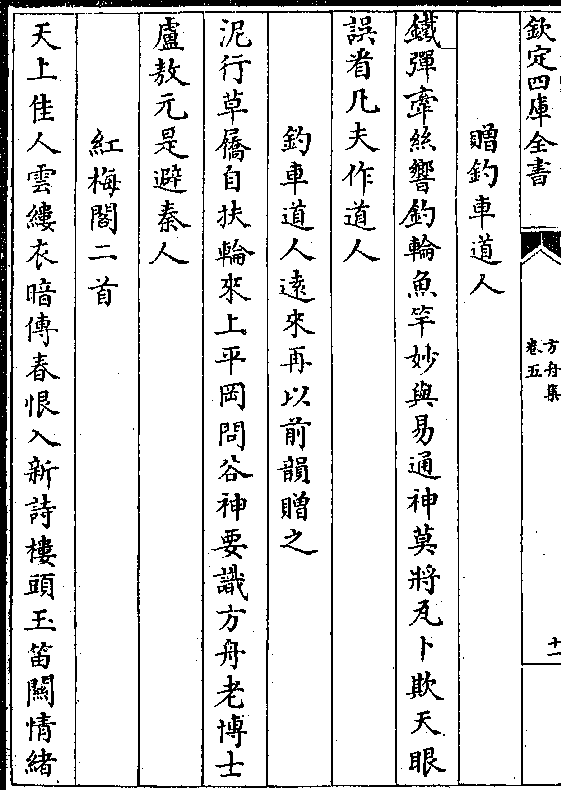 欽定四庫全書
方舟集
卷五
十一
贈釣車道人
鐵彈牽絲響釣輪魚竿妙與易通神莫將瓦卜欺天眼
誤看凡夫作道人
釣車道人遠來再以前韻贈之
泥行草屩自扶輪來上平岡問谷神要識方舟老博士
盧敖元是避秦人
紅梅閣二首
天上佳人雲縷衣暗傳春恨入新詩樓頭玉笛關情緒